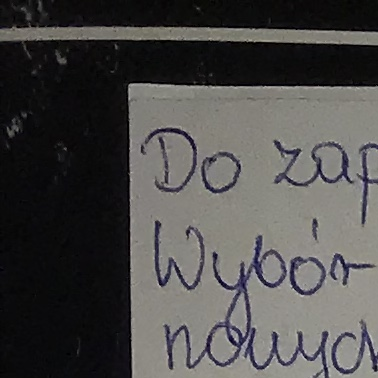 Do zap
Wybór
nowych